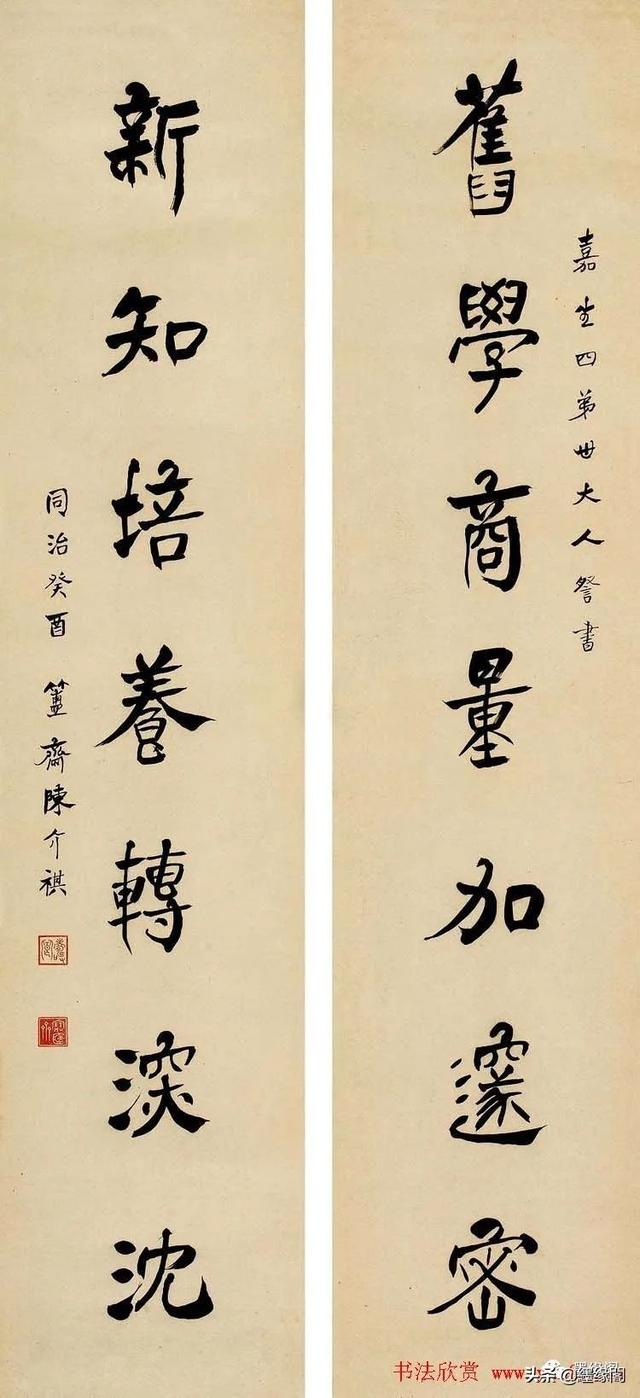 嘉生四弟世大人詧書
舊學商量加邃密
新知培養轉深沈
同治癸酉 簠齋陳介祺
书法欣赏 www.
头条@墨缘阁